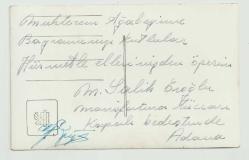 Muhterem Ağabeyime
Bayramınızı kutlular
Hürmetle ellerinizden öperim
M. Salih Eroğlu
Manifatura Tüccarı
Kapalı
Adana